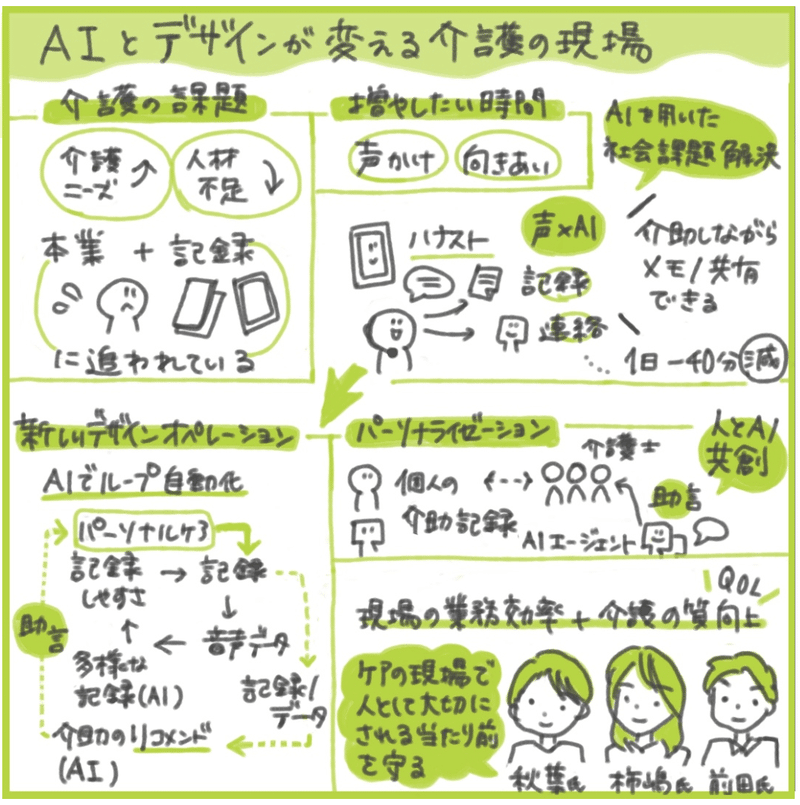 AIとデザインが変える介護の現場
介護の課題
介護
ニーズ
人材
不足
本業 + 記録
に追われている
増やしたい時間
声かけ
向きあい
AIを用いた
社会課題解決
ハナスト
声×AI
記録
連絡
介助しながら
メモ/共有
できる
1日-40分減
新しいデザインオペレーション
AIでループ自動化
パーソナルケア
記録
しやすさ
記録
音声データ
多様な
記録(AI)
助言
記録/
データ
介助のリコメンド
(AI)
パーソナライゼーション
人とAI
共創
個人の
介助記録
介護士
助言
AIエージェント
QOL
現場の業務効率+介護の質向上
ケアの現場で
人として大切に
される当たり前
を守る
秋葉氏
柿嶋氏
前田氏